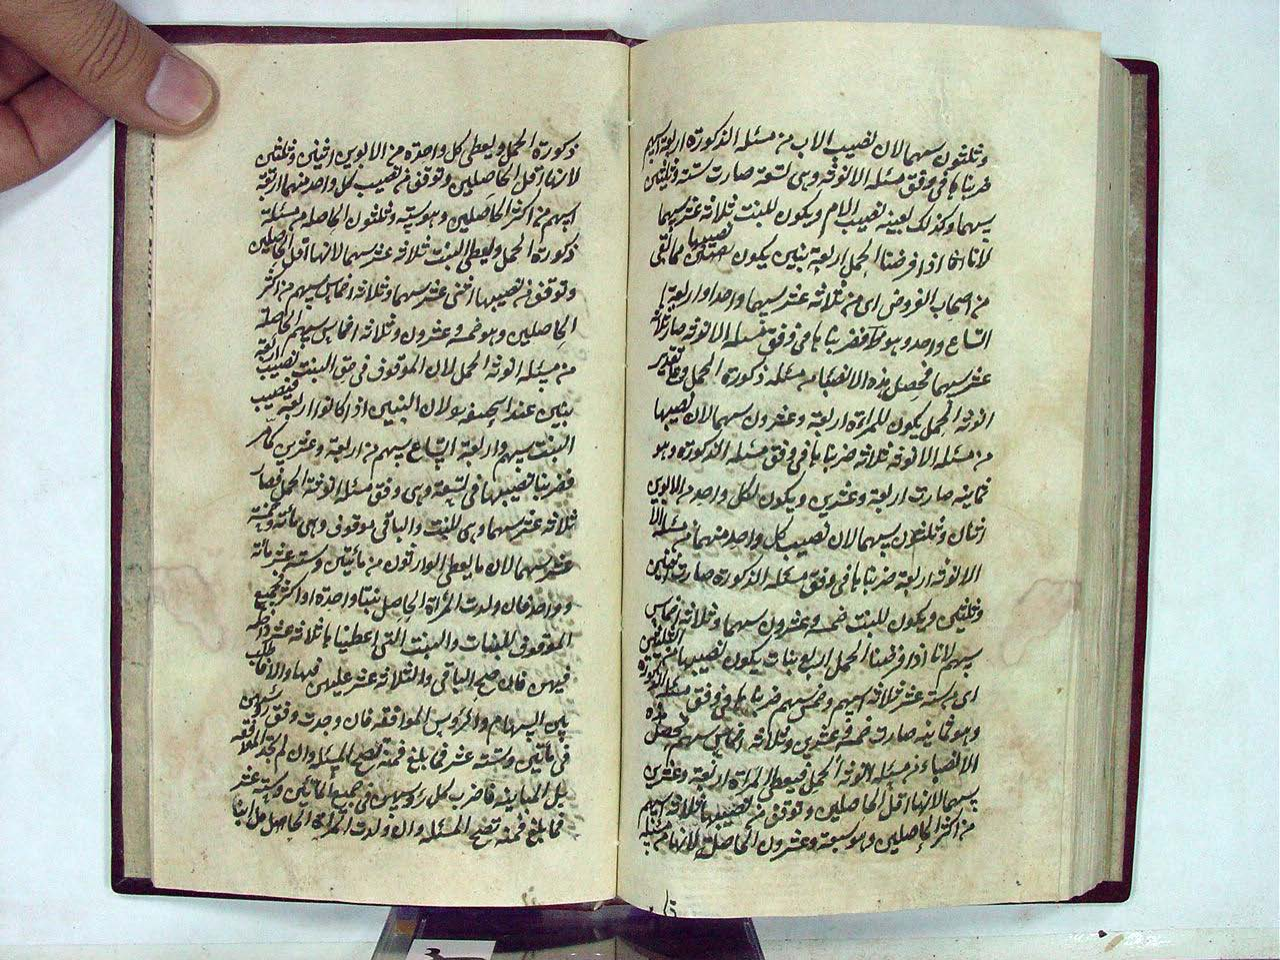 وثلثون سهما لان نصيب الاب من مسئلة الذكورة اربعة اسهم
ضربناها فى وفق مسئلة الانوثة وهى تسعة صارت ستة وثلثين
سهما وكذلك بعينه نصيب الام ويكون للبنت ثلاثة عشر سهما
لانا اذا فرضنا الحمل اربعة بنين يكون نصيبها مما بقى
من اصحاب الفروض اى من ثلاثة عشر سهما واحدا واربعة
اتساع واحد وهو فضربناها فى وفق مسئلة الانوثة صار ثلاثة
عشر سهما فحصل هذه الانصباء من مسئلة ذكورة الحمل وعلى تقدير
انوثة الحمل يكون للمراة اربعة وعشرون سهما لان نصيبها
من مسئلة الانوثة ثلاثة ضربناها فى وفق مسئلة الذكورة وهو
ثمانية صارت اربعة وعشرين ويكون لكل واحد من الابوين
اثنان وثلثون سهما لان نصيب كل واحد منهما من مسئلة
الانوثة اربعة ضربناها فى وفق مسئلة الذكورة صارت اثنين
وثلثين ويكون للبنت خمسة وعشرون سهما وثلاثة اخماس
سهم لانا اذا فرضنا الحمل اربع بنات يكون نصيبها من الثلثين
اى ستة عشر ثلاثة اسهم وخمس سهم ضربناها فى وفق مسئلة الذكورة
وهو ثمانية صارت خمسة وعشرين وثلاثة اخماس سهم فحصل هذه
الانصباء من مسئلة انوثة الحمل فيعطى المراة اربعة وعشرين
سهما لانها اقل الحاصلين وتوقف من نصيبها ثلاثة اسهم
من اكثر الحاصلين وهو سبعة وعشرون الحاصلة لانها من مسئلة
ذكورة الحمل ويعطى كل واحدة من الابوين اثنين وثلثين
لانها اقل الحاصلين وتوقف من نصيب كل واحد منهما اربعة
اسهم من اكثر الحاصلين وهو ستة وثلثون الحاصلة من مسئلة
ذكورة الحمل ويعطى البنت ثلاثة عشر سهما لانها اقل الحاصلين
وتوقف من نصيبها اثنى عشر سهما وثلاثة اخماس سهم من اكثر
الحاصلين وهو خمسة وعشرون وثلاثة اخماس سهم الحاصلة
من مسئلة انوثة الحمل لان الموقوف فى حق البنت نصيب اربعة
بنين عند ابى حنيفة ولان البنين اذا كانوا اربعة فنصيب
البنت سهم واربعة اتساع سهم من اربعة وعشرين كما مر
فضربنا نصيبها فى تسعة وهى وفق مسئلة انوثة الحمل فصار
ثلاثة عشر سهما وهى للبنت والباقى موقوف وهى مائة وخمسة
عشر سهما لان ما يعطى الوارثون من مأتين وستة عشر مائة
وواحد فان ولدت المراة الحامل بنتا واحدة او اكثر فجميع
الموقوف للبنات والبنت التى اعطيناها ثلاثة عشر داخلة
فيهن فان صح الباقى والثلاثة عشر عليهن فبها والا فاطلب
بين السهام والرؤس الموافقة فان وجدت وفق رؤسهن
فى مأتين وستة عشر فما بلغ فمنه تصح المسئلة وان لم تجد الموافقة
بل المباينة فاضرب كل رؤسهن فى جميع المأتين وستة عشر
فما بلغ فمنه تصح المسئلة وان ولدت المراة الحامل